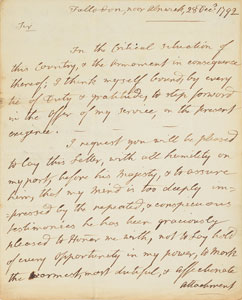 Fallodon, near Alnwick, 28 Decr. 1792
Sir
In the Critical situation of
this Country, & the Armament in consequence
thereof, I think myself bound, by every
tie of Duty & gratitude, to step forward
in the Offer of my Service, on the present
exigence.
I request you will be pleased
to lay this Letter, with all humility on
my part, before his Majesty, & to assure
him, that my mind is too deeply im-
pressed by the repeated, & conspicuous
testimonies he has been graciously
pleased to Honor me with, not to lay hold
of every Opportunity in my power, to mark
the warmest, most dutiful, & affectionate
attachment